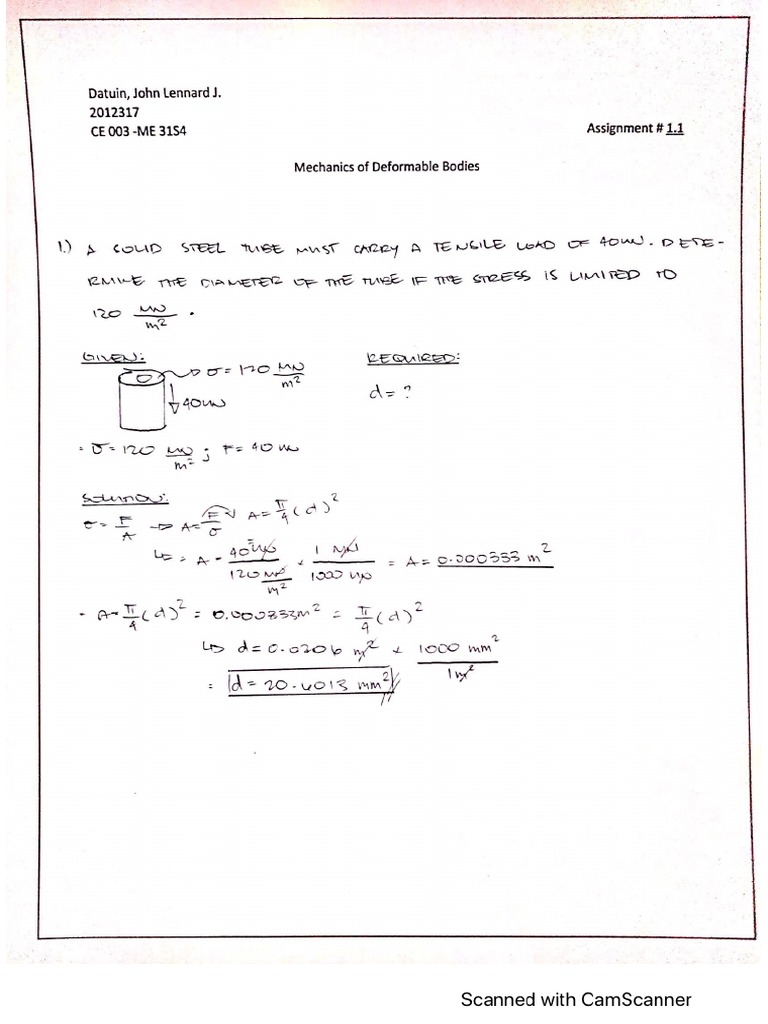 Datuin, John Lennard J.
2012317
CE 003 -ME 31S4
Assignment # 1.1
Mechanics of Deformable Bodies
1.) A SOLID STEEL TUBE MUST CARRY A TENSILE LOAD OF 40 kN. DETE-
RMINE THE DIAMETER OF THE TUBE IF THE STRESS IS LIMITED TO
120 MN/m².
GIVEN:
REQUIRED:
σ = 120 MN/m²
d = ?
40 kN
= σ = 120 MN/m² ; F = 40 kN
SOLUTION:
σ = F/A → A = F/σ A = π/4 (d)²
↳ = A = 40 kN / 120 MN/m² × 1 MN / 1000 kN = A = 0.000333 m²
- A = π/4 (d)² = 0.000333 m² = π/4 (d)²
↳ d = 0.0206 m² × 1000 mm² / 1 m²
= d = 20.6013 mm²
Scanned with CamScanner